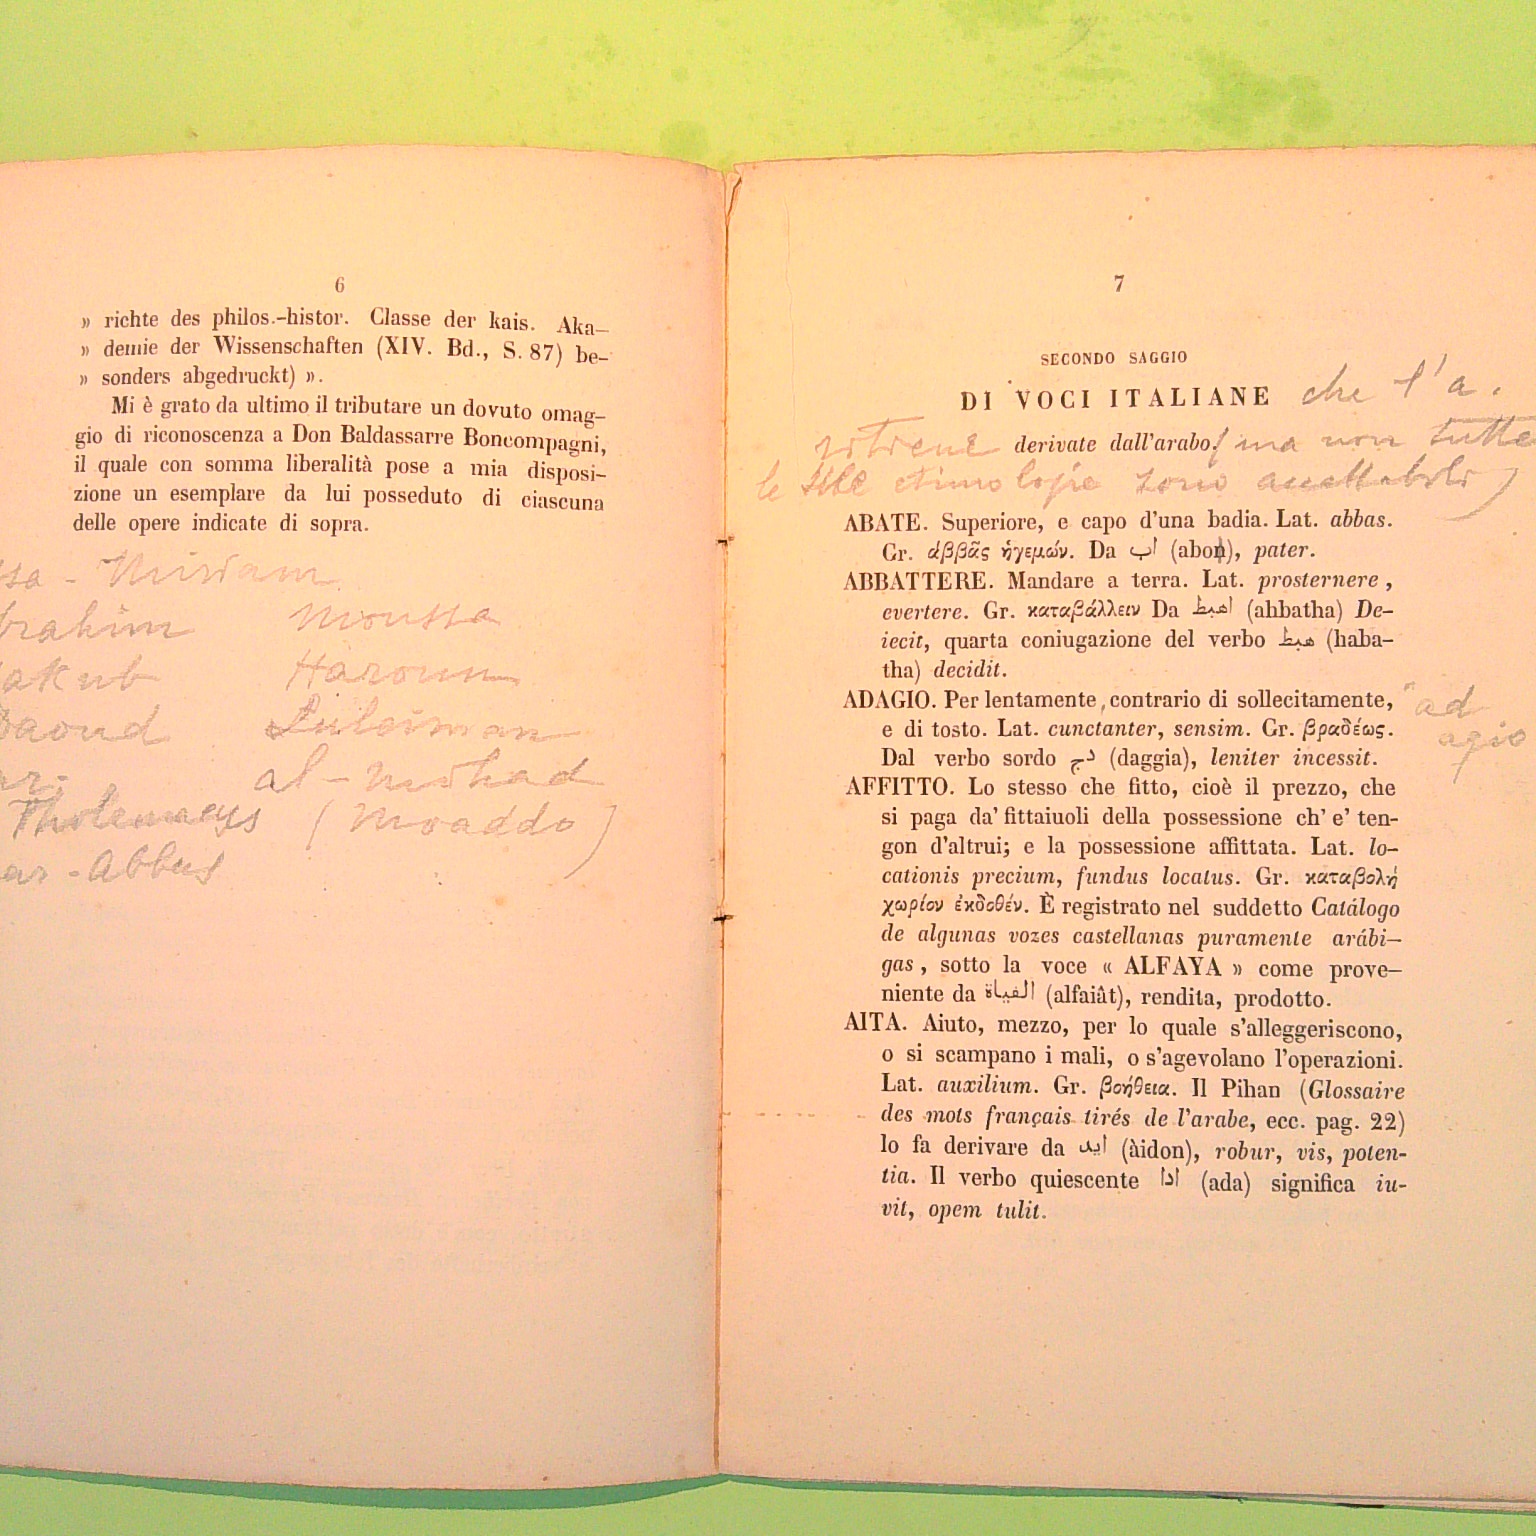 6
» richte des philos.-histor. Classe der kais. Aka-
» demie der Wissenschaften (XIV. Bd., S. 87) be-
» sonders abgedruckt) ».
Mi è grato da ultimo il tributare un dovuto omag-
gio di riconoscenza a Don Baldassarre Boncompagni,
il quale con somma liberalità pose a mia disposi-
zione un esemplare da lui posseduto di ciascuna
delle opere indicate di sopra.
Miriam
brahim Moussa
akub Haroun
Daoud Suleiman
al-Mohad
Tholemaeys (Moaddo)
ar-Abbus
7
SECONDO SAGGIO
DI VOCI ITALIANE che l'a.
ritiene derivate dall'arabo! (ma non tutte
le sue etimologie sono accettabili)
ABATE. Superiore, e capo d'una badia. Lat. abbas.
Gr. ἀββᾶς ἡγεμών. Da اب (abon), pater.
ABBATTERE. Mandare a terra. Lat. prosternere,
evertere. Gr. καταβάλλειν Da اهبط (ahbatha) De-
iecit, quarta coniugazione del verbo هبط (haba-
tha) decidit.
ADAGIO. Per lentamente, contrario di sollecitamente, "ad
e di tosto. Lat. cunctanter, sensim. Gr. βραδέως. agio
Dal verbo sordo دج (daggia), leniter incessit.
AFFITTO. Lo stesso che fitto, cioè il prezzo, che
si paga da' fittaiuoli della possessione ch' e' ten-
gon d'altrui; e la possessione affittata. Lat. lo-
cationis precium, fundus locatus. Gr. καταβολὴ
χωρίον ἐκδοθέν. È registrato nel suddetto Catálogo
de algunas vozes castellanas puramente arábi-
gas, sotto la voce « ALFAYA » come prove-
niente da الفياة (alfaiât), rendita, prodotto.
AITA. Aiuto, mezzo, per lo quale s'alleggeriscono,
o si scampano i mali, o s'agevolano l'operazioni.
Lat. auxilium. Gr. βοήθεια. Il Pihan (Glossaire
des mots français tirés de l'arabe, ecc. pag. 22)
lo fa derivare da ايد (àidon), robur, vis, poten-
tia. Il verbo quiescente ادا (ada) significa iu-
vit, opem tulit.